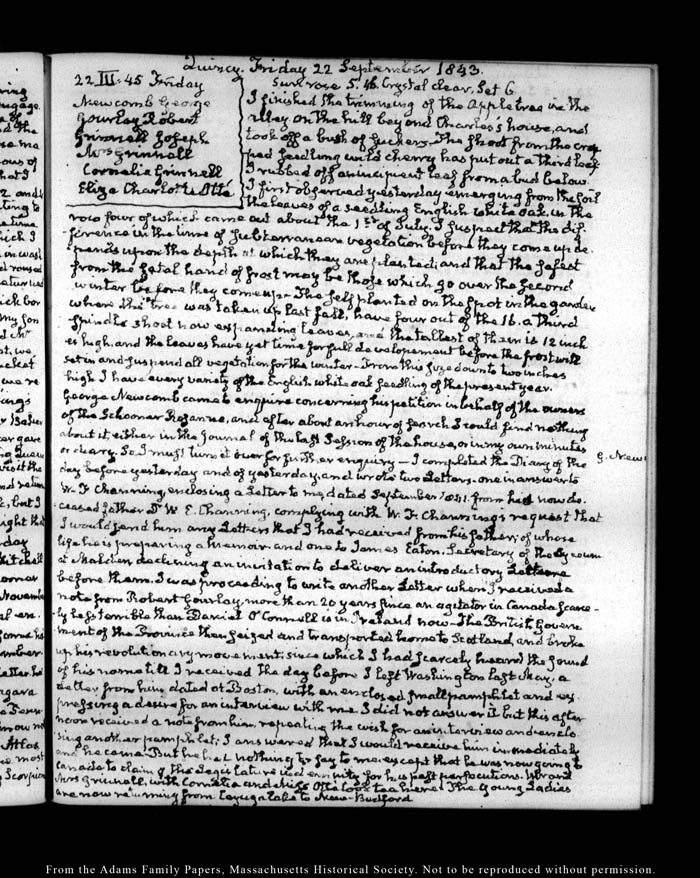 Quincy. Friday 22 September 1843.
22. III:45 Friday
Newcomb George
Gourlay Robert
Grinnell Joseph
Mrs Grinnell
Cornelia Grinnell
Eliza Charlotte Otis
Sun rose 5.46. Crystal clear, Set 6
I finished the trimming of the Apple tree in the
alley on the hill beyond Charles's house, and
took off a bush of suckers. The shoot from the crop
ped seedling wild cherry has put out a third leaf
I rubbed off an incipient leaf from a bud below.
I first observed yesterday emerging from the soil
the leaves of a seedling English white oak, in the
row four of which came out about the 1st of July. I suspect that the dif-
ference in the time of subterranean vegetation before they come up de
pends upon the depth at which they are planted; and that the safest
from the fatal hand of frost may be those which go over the second
winter before they come up. The self planted on the spot in the garden
where the tree was taken up last fall, have four out of the 16. a third
spindle shoot now expanding leaves, and the tallest of them is 12 inch
es high, and the leaves have yet time for full developement before the frost will
set in and suspend all vegetation for the winter. From this size down to two inches
high I have every variety of the English white oak seedling of the present year.
George Newcomb came to enquire concerning his petition in behalf of the owners
of the Schooner and after about an hour of search I could find nothing
about it, either in the Journal of the last Session of the house, or in my own minutes
or diary. So I must turn it over for further enquiry. I completed the Diary of the
day before yesterday and of yesterday, and wrote two Letters. one in answer to
W. F. Channing, enclosing a Letter to me dated September from his now de.
ceased father Dr W. E. Channing, complying with W. F. Channing's request that
I would send him any Letters that I had received from his father; of whose
life he is preparing a memoir and one to James Eaton. Secretary of the Lyceum
at Malden declining an invitation to deliver an introductory Lecture
before them. I was proceeding to write another Letter when I received a
note from Robert Gourlay, more than 20 years since an agitator in Canada scarce-
ly less terrible than Daniel O'Connell is in Ireland now. The British Govern
ment of the Province then seized and transported home to Scotland, and broke
up his revolutionary movement; since which I had scarcely heard the sound
of his name till I received the day before I left Washington last May, a
Letter from him dated at Boston with an enclosed small pamphlet and ex.
pressing a desire for an interview with me I did not answer it but this after
noon received a note from him repeating the wish for an interview and enclo
sing another pamphlet; I answered that I would receive him immediately
and he came. But he had nothing to say to me except that he was now going to
Canada to claim of the Legislature indemnity for his past persecutions.
Mrs Grinnell, with Cornelia and Miss Otis took tea here. The young Ladies
are now returning from Cayuga lake to New-Bedford
G. New
From the Adams Family Papers, Massachusetts Historical Society. Not to be reproduced without permission.